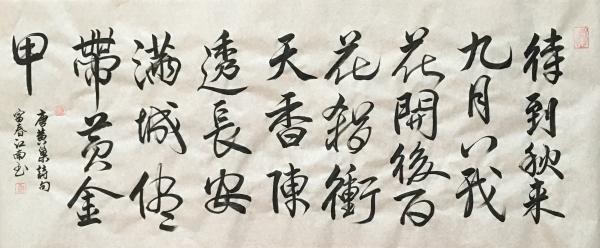 待到秋来
九月八我
花開後百
花殺衝
天香陳
透長安
滿城儘
帶黄金
甲
唐黄巢詩句
富春江南